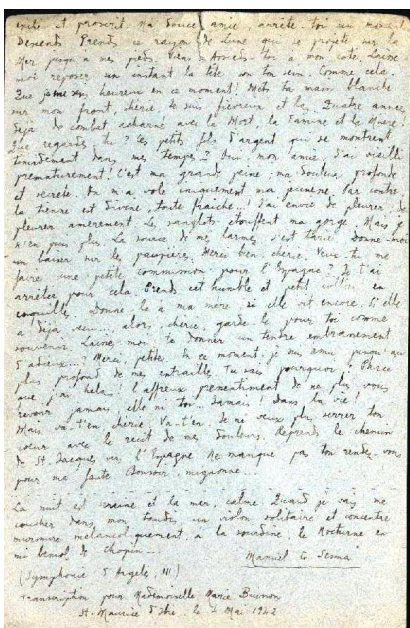 exilé et proscrit. Ma douce amie arrête-toi un moment
Descends. Prends ce rayon de lune qui se projete sur la
Mer jusqu'a mes pieds. Viens. Assieds-toi a mon coté. Laisse
moi reposer un instant la tête sur ton sein. Comme cela.
Que je suis heureux en ce moment! Mets ta main blanche
sur mon front, chérie. Je suis fiévreux et las. Quatre années
déjà de combat acharné avec la Mort, la Famine et la Misère!
Que regardes-tu? Les petits fils d'argent qui se montrent
timidement dans mes tempes? Oui, mon amie. J'ai vieilli
prematurement! C'est ma grande peine, ma douleur profonde
et secrète. On m'a volé iniquement ma jeunesse. Par contre
la tienne est divine, toute fraiche! J'ai envie de pleurer, de
pleurer amèrement. Les sanglots etouffent ma gorge. Mais je
n'en puis plus. La source de mes larmes s'est tarie. Donne-moi
un baiser sur les paupières. Merci bien, chérie. Veux-tu me
faire une petite commission pour l'Espagne? Je t'ai
arrêtée pour cela. Prends cet humble et petit collier en
coquille. Donne-le a ma mère, si elle vit encore. Si elle
a déjà alors, chérie, garde-le pour toi comme
souvenir. Laisse-moi te donner un tendre embrassement
d'adieux...? Merci, petite. En ce moment, je suis emu jusqu'au
plus profond de mes entrailles. Tu sais pourquoi? Parce
que j'ai helas! l'affreux pressentiment de ne plus vous
revoir jamais, elle ni toi... Jamais! dans la vie!
Mais va-t'en, chérie! Va-t'en. Je ne veux plus serrer ton
coeur avec le récit de mes douleurs. Reprends le chemin
de St. Jacques vers l'Espagne. Ne manque pas ton rendez-vous
pour ma faute. Bonsoir, mignonne.
La nuit est sereine et la mer, calme. Quand je vais me
coucher dans mon taudis, un violon solitaire et
murmure melancoliquement, a la sourdine, le Nocturne en
mi bemol de Chopin...
Manuel G. Sesma
(Symphonie d'Argelès, III)
Transcription pour Mademoiselle Marie
St. Maurice le 2 Mai 1942